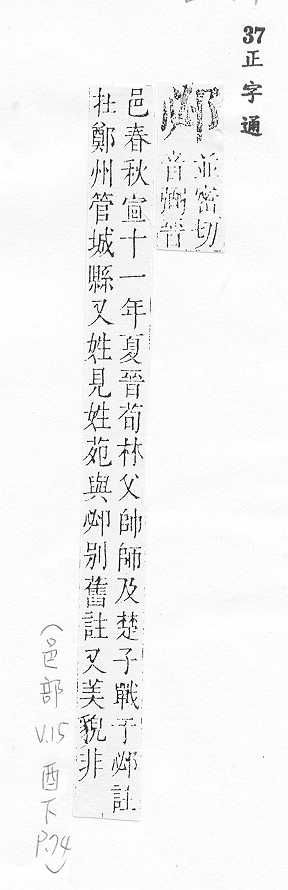 37正字通
邲
並密切
音弼晉
邑春秋宣十一年夏晉荀林父帥師及楚子戰于邲註
在鄭州管城縣又姓見姓苑與邲别舊註又美貌非
(邑部 V.15 酉下 P.74)